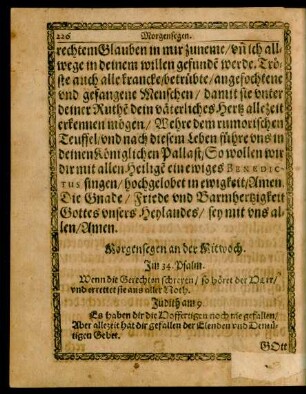 226 Morgensegen.
rechtem Glauben in mir zuneme/ vñ ich all-
wege in deinem willen gefundẽ werde. Trö-
ste auch alle krancke/ betrübte/ angefochtene
vnd gefangene Menschen/ damit sie vnter
deiner Ruthẽ dein väterliches Hertz allezeit
erkennen mögen/ Wehre dem rumorischen
Teuffel/ vnd nach diesem Leben führe vns in
deinen Königlichen Pallast/ So wollen wir
dir mit allen Heiligẽ ein ewiges BENEDIC-
TUS singen/ hochgelobet in ewigkeit/ Amen.
Die Gnade/ Friede vnd Barmhertzigkeit
Gottes vnsers Heylandes/ sey mit vns al-
len/ Amen.
Morgensegen an der Mitwoch.
Im 34. Psalm.
Wenn die Gerechten schreyen/ so höret der HErr/
vnd errettet sie aus aller Noth.
Judith am 9.
Es haben dir die Hoffertigen noch nie gefallen/
Aber allezeit hat dir gefallen der Elenden vnd Demü-
tigen Gebet.
GOtt